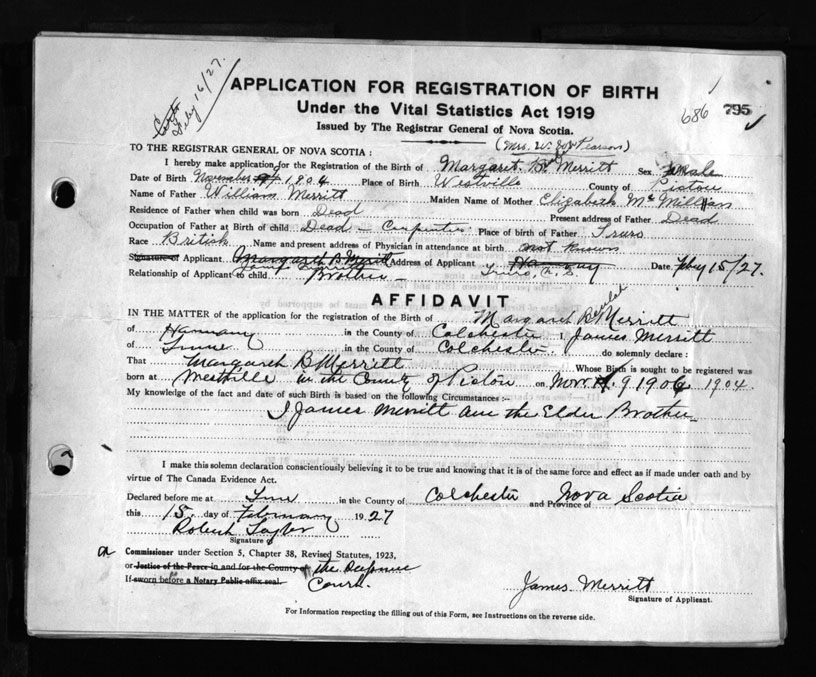 Feby 16/27.
APPLICATION FOR REGISTRATION OF BIRTH
Under the Vital Statistics Act 1919
686 795
Issued by The Registrar General of Nova Scotia.
(Mrs. W. Pearson)
TO THE REGISTRAR GENERAL OF NOVA SCOTIA :
I hereby make application for the Registration of the Birth of Margaret B. Merritt Sex Female
Date of Birth November 9 1904 Place of Birth Westville County of Pictou
Name of Father William Merritt Maiden Name of Mother Elizabeth McMillan
Residence of Father when child was born Dead Present address of Father Dead
Occupation of Father at Birth of child Dead - Carpenter Place of birth of Father Truro
Race British Name and present address of Physician in attendance at birth not known
Signature of Applicant Margaret B Merritt Address of Applicant Harmony Date Feby 15/27.
James Merritt Truro, N. S.
Relationship of Applicant to child Brother
AFFIDAVIT
IN THE MATTER of the application for the registration of the Birth of Margaret Beulah Merritt
of Harmony in the County of Colchester I, James Merritt
of Truro in the County of Colchester. do solemnly declare :
That Margaret B Merritt Whose Birth is sought to be registered was
born at Westville in the County of Pictou on Nov. 9 1906 1904.
My knowledge of the fact and date of such Birth is based on the following Circumstances :-
I James Merritt am the Elder Brother
I make this solemn declaration conscientiously believing it to be true and knowing that it is of the same force and effect as if made under oath and by
virtue of The Canada Evidence Act.
Declared before me at Truro in the County of Colchester and Province of Nova Scotia
this 15 day of February 1927
Robert Taylor
Signature of
a Commissioner under Section 5, Chapter 38, Revised Statutes, 1923,
or Justice of the Peace in and for the County of the Supreme
If sworn before a Notary Public affix seal. Court.
James Merritt
Signature of Applicant.
For Information respecting the filling out of this Form, see Instructions on the reverse side.